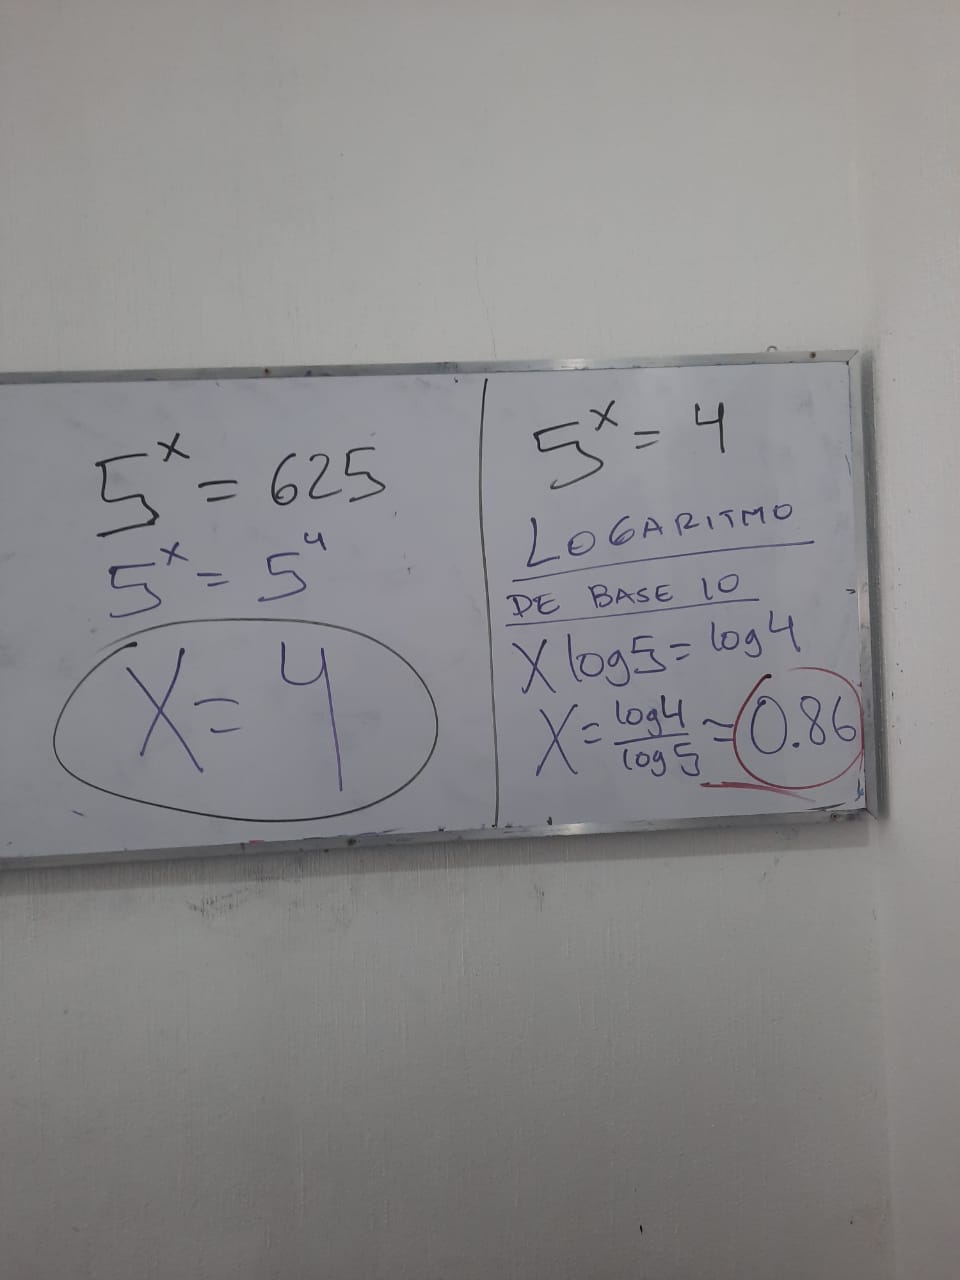 5^x = 625
5^x = 5^4
X = 4
5^x = 4
LOGARITMO
DE BASE 10
X log5 = log4
X = log4/log5 ≈ 0.86